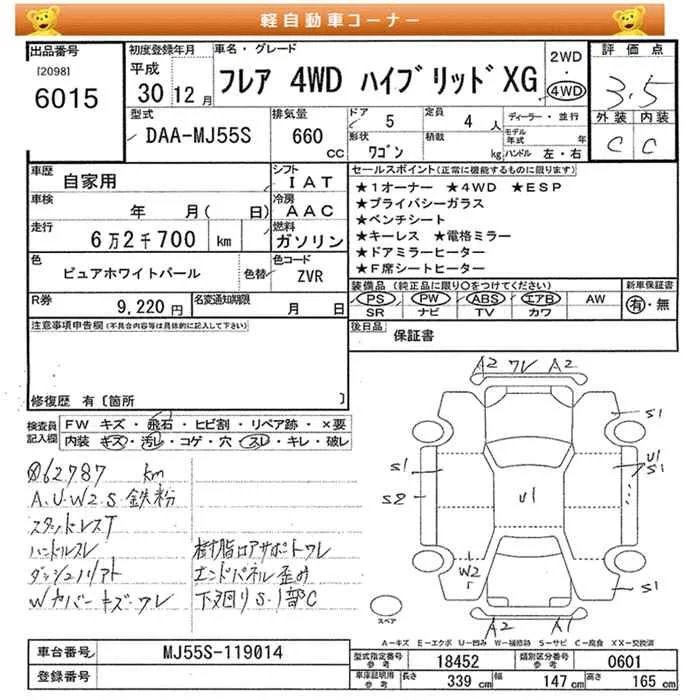 軽自動車コーナー
出品番号
[2098]
6015
初度登録年月
平成
30年12月
車名・グレード
フレア 4WD ハイブリッド XG
2WD
・
4WD
評価点
3.5
外装 内装
C C
型式
DAA-MJ55S
排気量
660
cc
ドア
5
形状
ワゴン
定員
4人
積載
kg
ディーラー・並行
モデル年式 年
ハンドル 左・右
車歴
自家用
シフト
IAT
車検
年 月( 日)
冷房
AAC
走行
6万2千700 km
燃料
ガソリン
色
ピュアホワイトパール
色替
色コード
ZVR
R券
9,220円
名変通知期限
月 日
セールスポイント(正常に機能するものに限ります)
★1オーナー ★4WD ★ESP
★プライバシーガラス
★ベンチシート
★キーレス ★電格ミラー
★ドアミラーヒーター
★F席シートヒーター
装備品 (純正品に限り○をつけてください)
PS PW ABS エアB AW
SR ナビ TV カワ
新車保証書
有・無
後日品
保証書
注意事項申告欄(不具合内容等は具体的に記入して下さい)
修復歴 有〔箇所 〕
検査員記入欄
FW キズ・飛石・ヒビ割・リペア跡・×要
内装 キズ・汚レ・コゲ・穴・スレ・キレ・破レ
62787 km
A.U.W2.S 鉄粉
スタッドレスT
ハンドルスレ
ダッシュノリアト
Wカバーキズ・ワレ
樹脂ロアサポートワレ
エンドパネル歪み
下廻りS.1部C
A2 ワレ A2
S1
S1
S2
U1
U1
S1
W2
S1
A2 A1
スペア
A-キズ E-エクボ U-凹み W-補修跡 S-サビ C-腐食 XX-交換済
車台番号
MJ55S-119014
登録番号
型式指定番号
参考
18452
類別区分番号
参考
0601
車庫証明用
参考
長さ 339 cm 幅 147 cm 高さ 165 cm